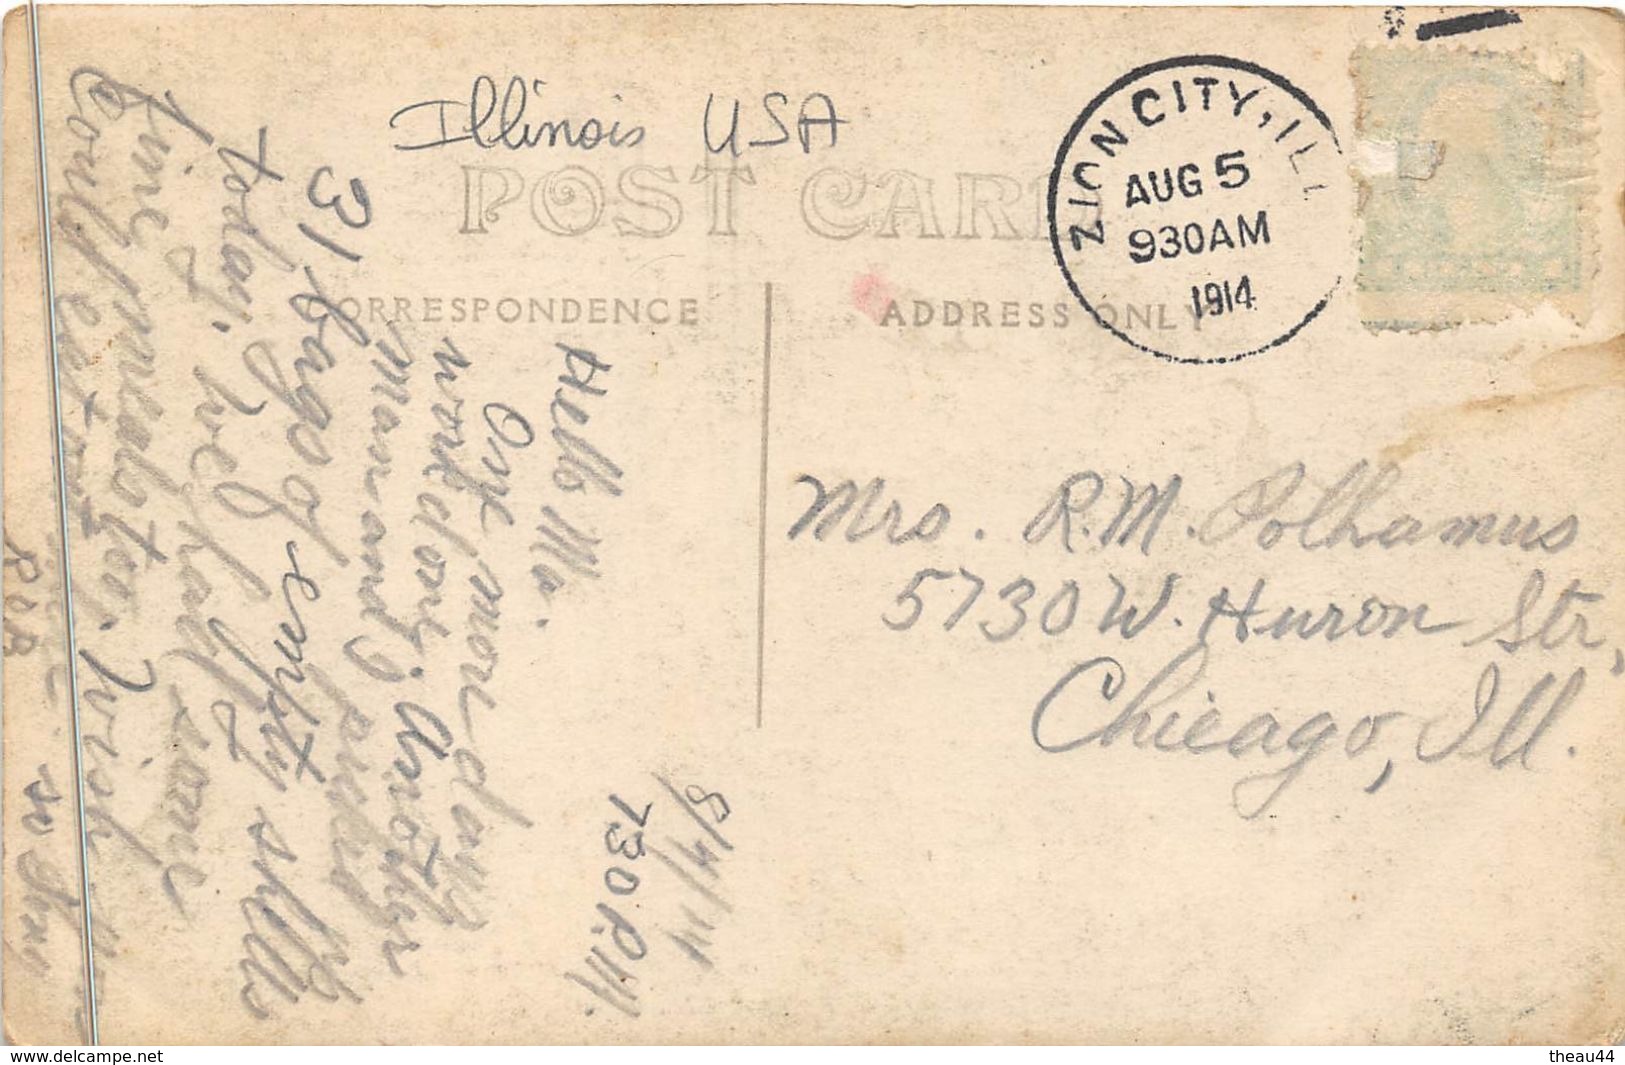 Illinois USA
POST CARD
CORRESPONDENCE
ADDRESS ONLY
ZION CITY, ILL
AUG 5
930AM
1914
Mrs. R.M. Polhamus
5730 W. Huron Str,
Chicago, Ill.
8/4/14
730 P.M.
Hello Ma.
One more days
work done; Another
man and I picked
31 bags of empty shells
today. We had some
fine potatoes; Wish you
could eat
R.O.B.
www.delcampe.net
theau44